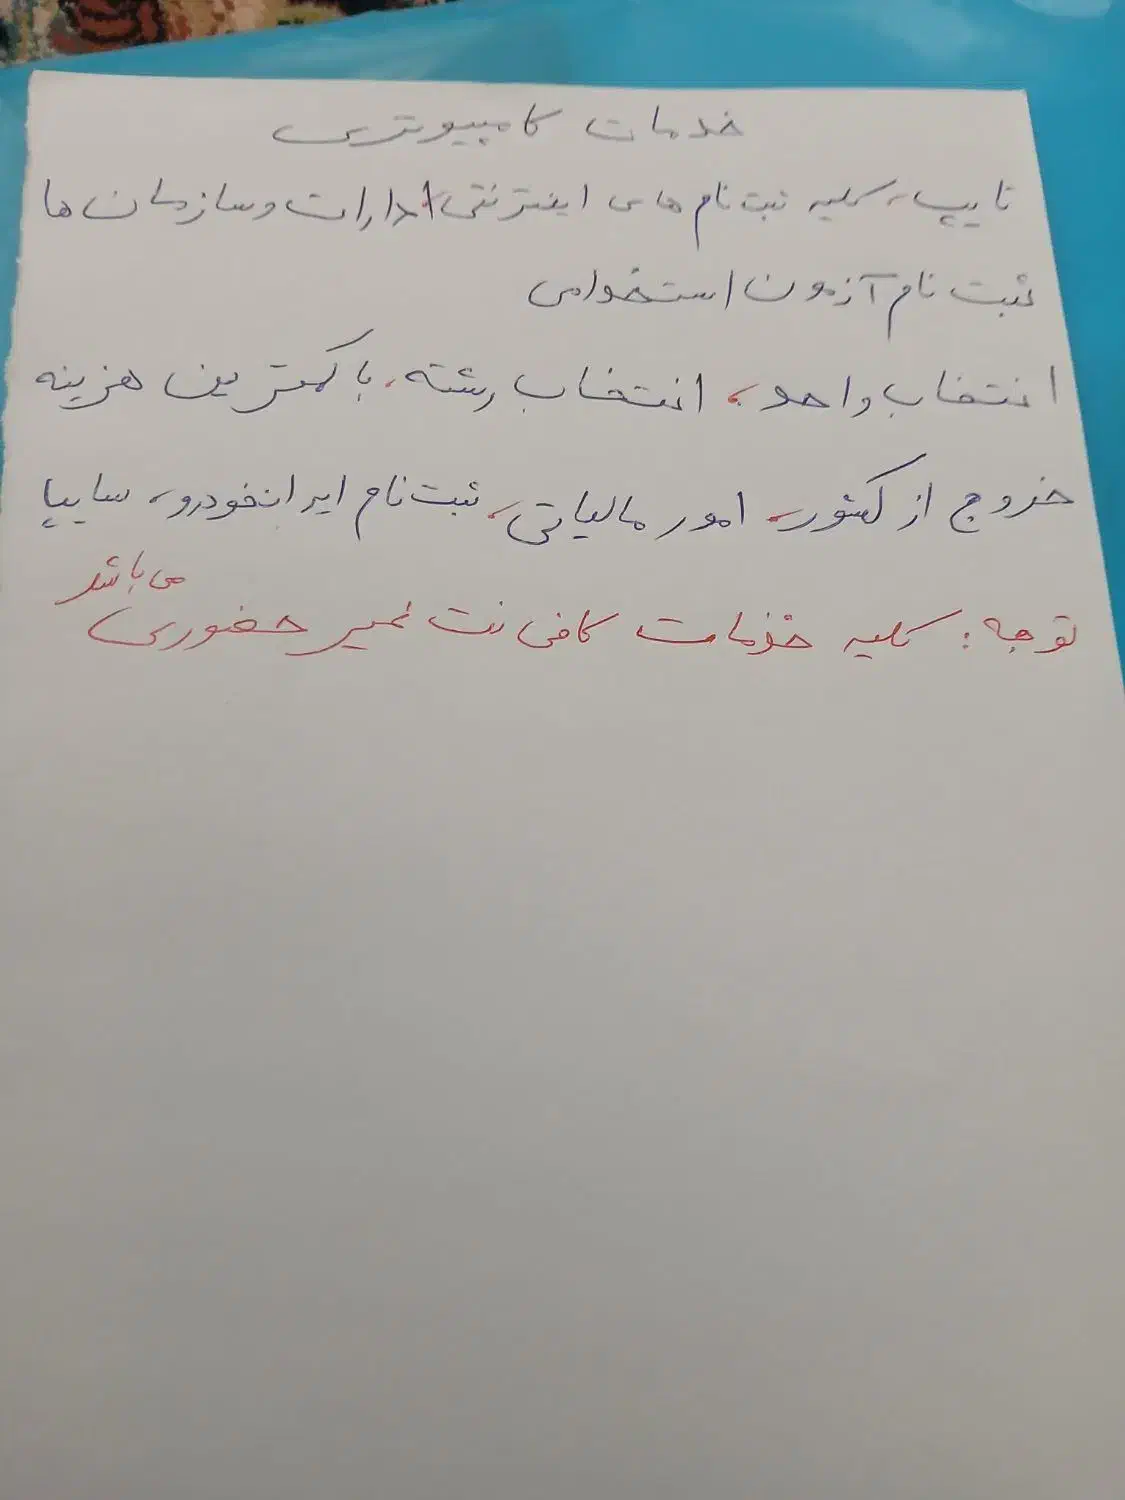 خدمات کامپیوتری
تایپ، کلیه ثبت نام های اینترنتی ادارات و سازمان ها
ثبت نام آزمون استخدامی
انتخاب واحد، انتخاب رشته، با کمترین هزینه
خروج از کشور، امور مالیاتی، ثبت نام ایرانخودرو، سایپا
توجه: کلیه خدمات کافی نت غیر حضوری می باشد